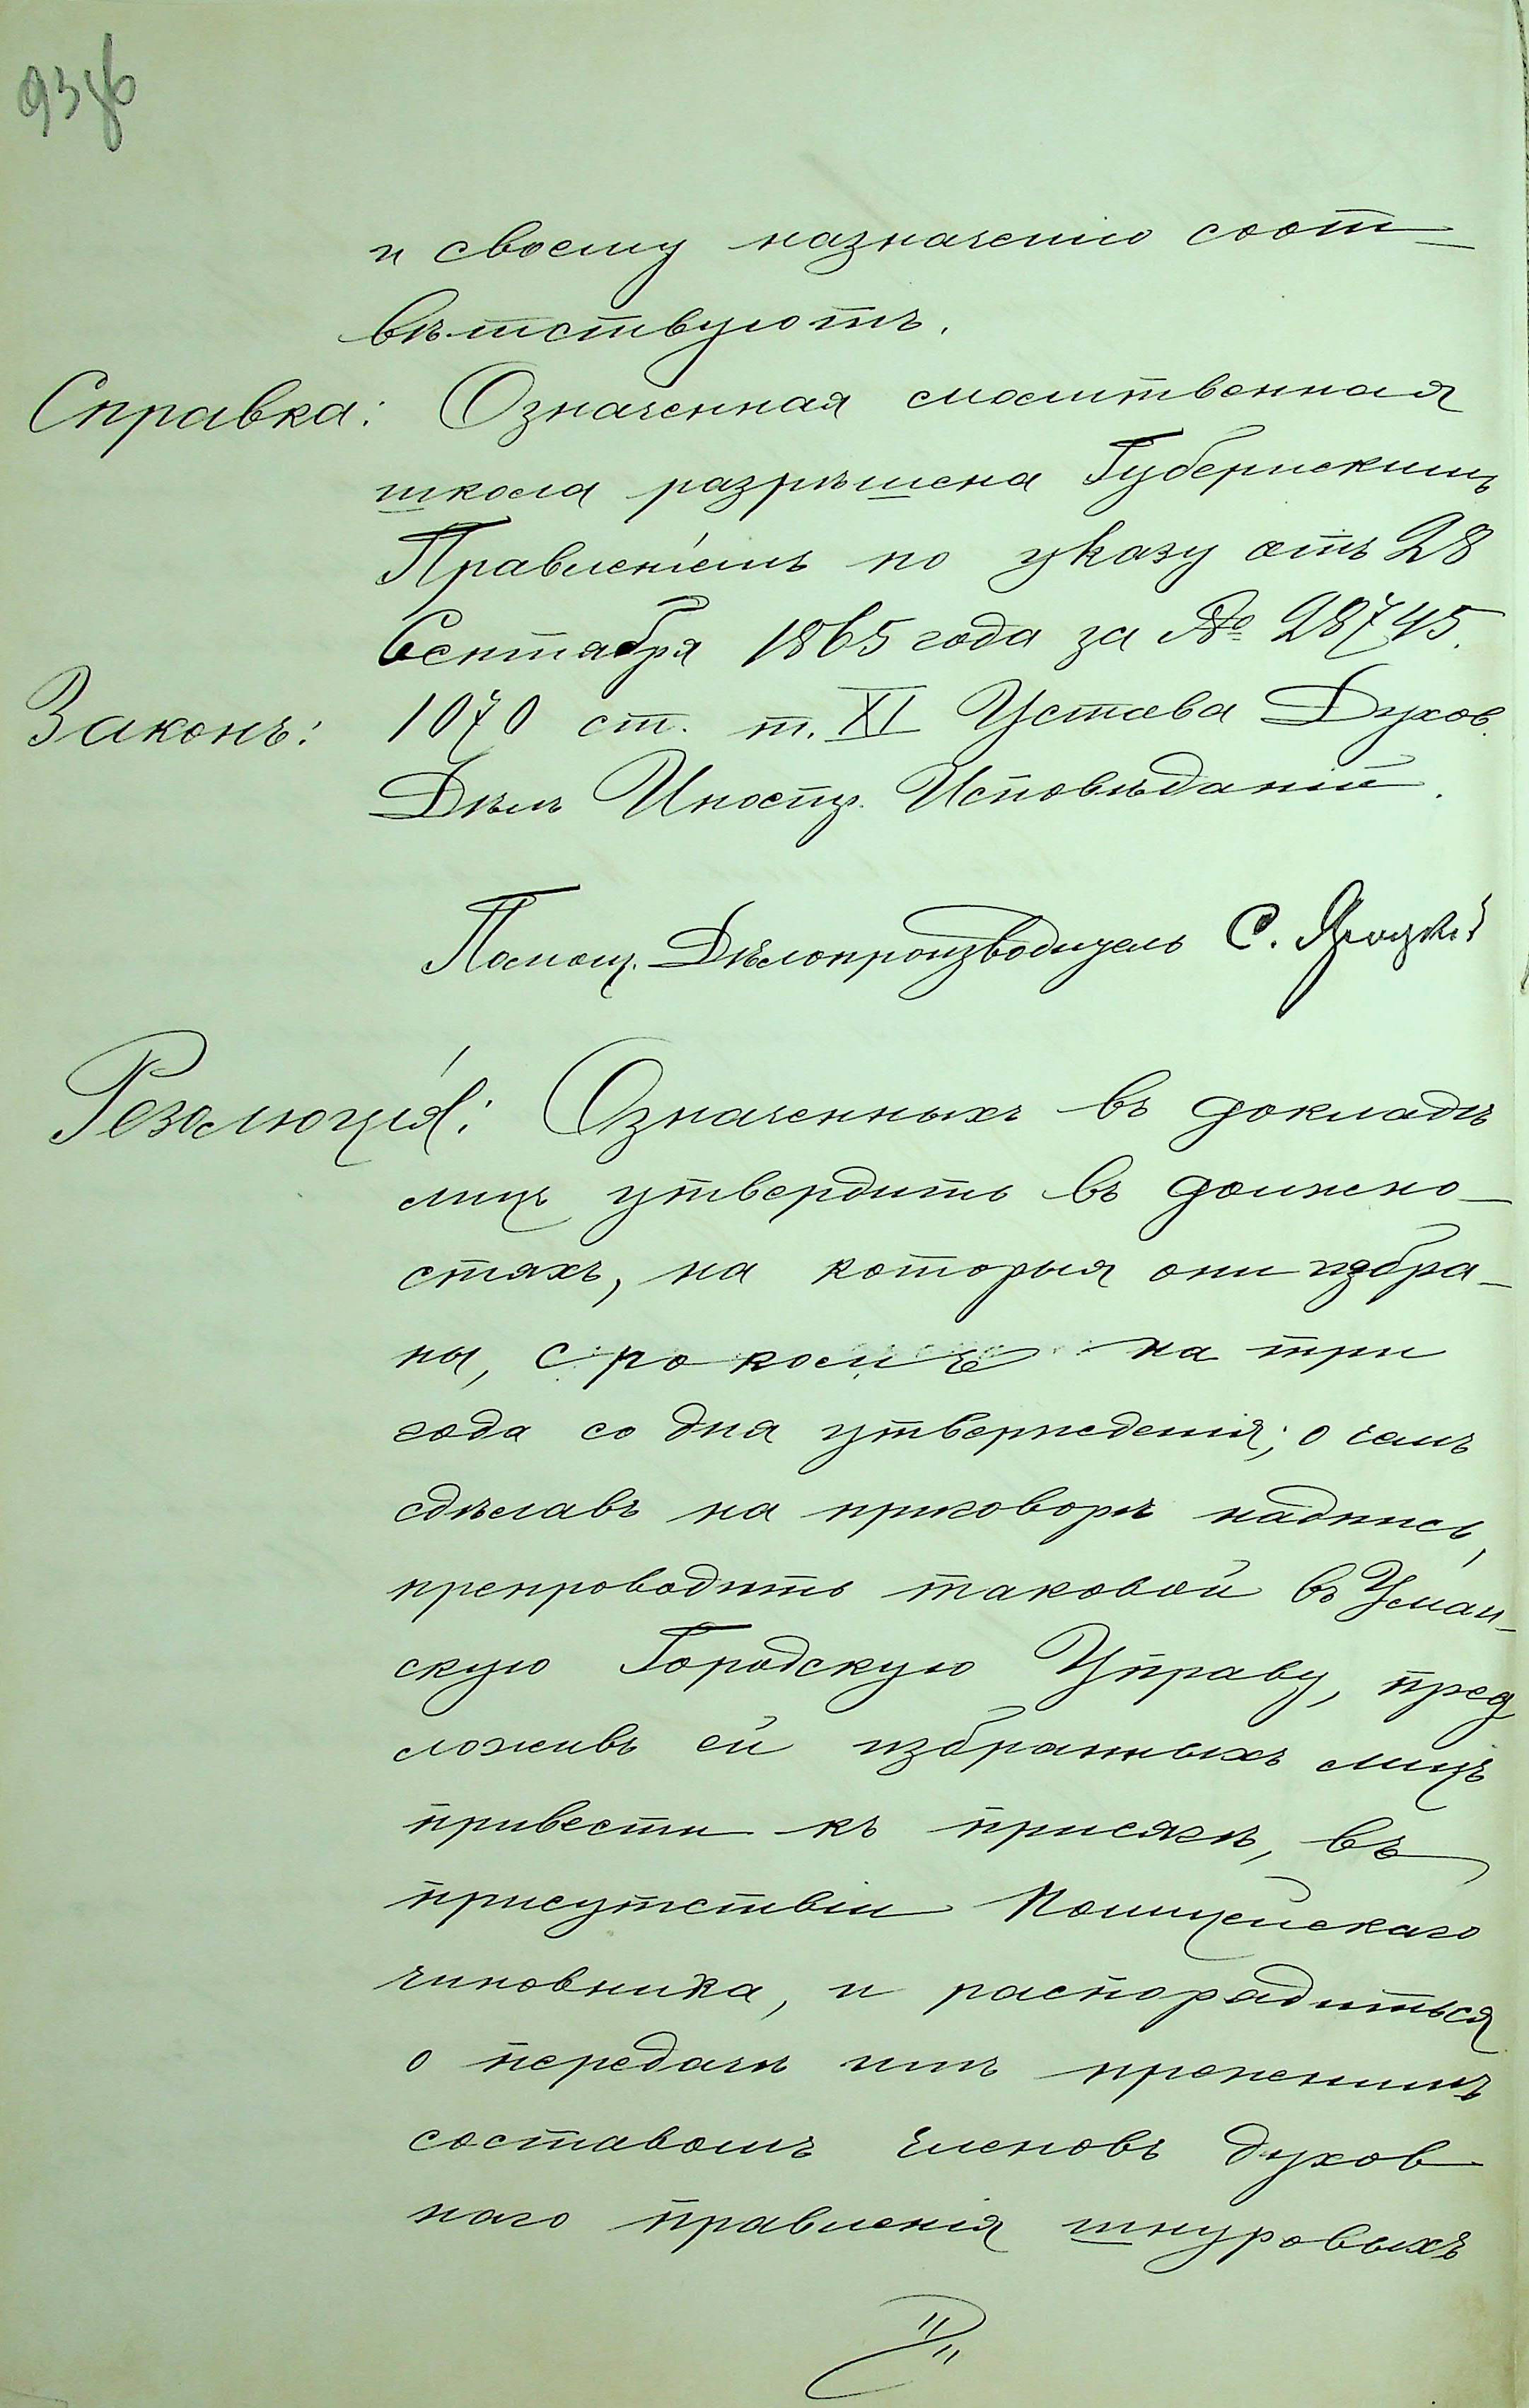 93 об
и своему назначенію соот-
вѣтствуютъ.
Справка: Означенная молитвенная
школа разрѣшена Губернскимъ
Правленіемъ по указу отъ 28
Сентября 1865 года за № 28745.
Законъ: 1070 ст. т. XI Устава Духов.
Дѣлъ Иностр. Исповѣданій.
Помощ. Дѣлопроизводитель С.
Резолюція: Означенныхъ въ докладѣ
лицъ утвердить въ должно-
стяхъ, на которыя они избра-
ны, срокомъ на три
года со дня утвержденія; о чемъ
сдѣлавъ на приговорѣ надпись,
препроводить таковой въ Уман-
скую Городскую Управу, пред
ложивъ ей избранныхъ лицъ
привести къ присягѣ, въ
присутствіи Полицейскаго
чиновника, и распорядиться
о передачѣ имъ прежнимъ
составомъ членовъ духов
наго правленія шнуровыхъ